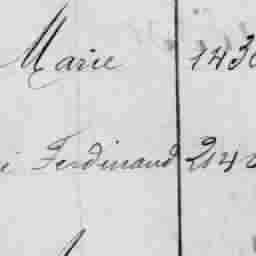 Marie 143
i Ferdinand 214